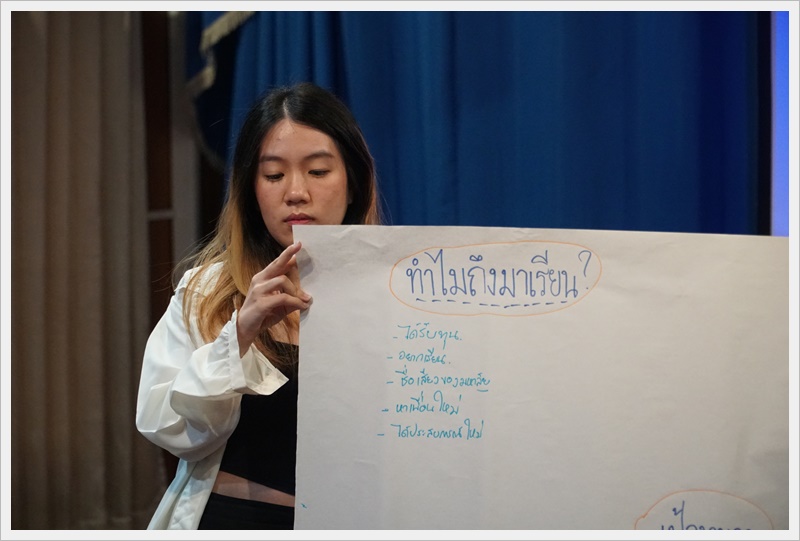 ทำไมถึงมาเรียน?
- ได้รับทุน.
- อยากเรียน.
- ชื่อเสียงของมหาลัย
- หาเพื่อนใหม่
- ได้ประสบการณ์ใหม่